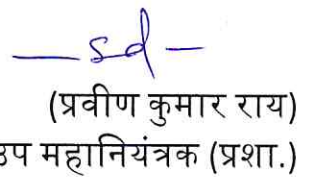 —sd—
(प्रवीण कुमार राय)
उप महानियंत्रक (प्रशा.)